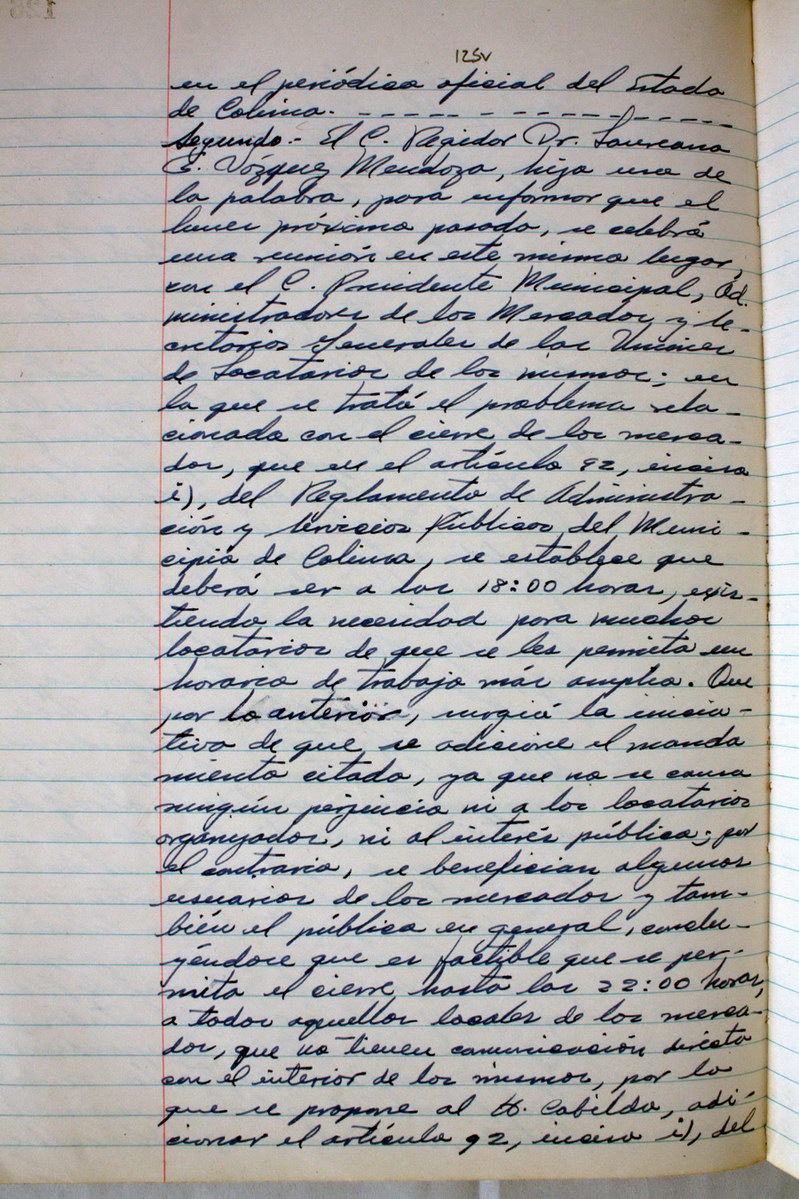 125v
en el periódico oficial del Estado
de Colima. - - - - - - - - - - - - - -
Segundo.- El C. Regidor Dr. Laureano
E. Vázquez Mendoza, hizo uso de
la palabra, para informar que el
lunes próximo pasado, se celebró
una reunión en este mismo lugar,
con el C. Presidente Municipal, Ad-
ministradores de los Mercados y Se-
cretarios Generales de las Uniones
de Locatarios de los mismos; en
la que se trató el problema rela-
cionado con el cierre de los merca-
dos, que en el artículo 92, inciso
i), del Reglamento de Administra-
ción y Servicios Públicos del Muni-
cipio de Colima, se establece que
deberá ser a las 18:00 horas, exis-
tiendo la necesidad para muchos
locatarios de que se les permita un
horario de trabajo más amplio. Que
por lo anterior, surgió la inicia-
tiva de que se adicione el manda
miento citado, ya que no se causa
ningún perjuicio ni a los locatarios
organizados, ni al interés público; por
el contrario, se benefician algunos
usuarios de los mercados y tam-
bién el público en general, conclu-
yéndose que es factible que se per-
mita el cierre hasta las 22:00 horas,
a todos aquellos locales de los merca-
dos, que no tienen comunicación directa
con el interior de los mismos, por lo
que se propone al H. Cabildo, adi-
cionar el artículo 92, inciso i), del